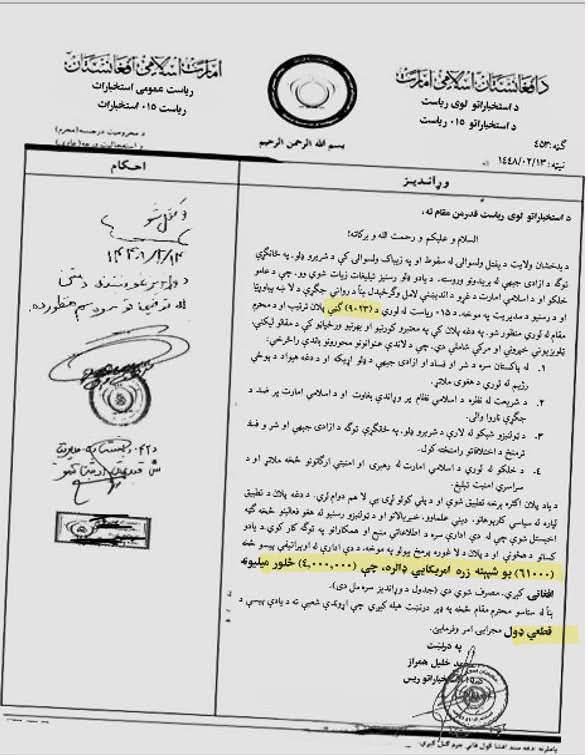 د افغانستان اسلامي امارت
د استخباراتو لوی ریاست
د استخباراتو ۰۱۵ ریاست
امارت اسلامی افغانستان
ریاست عمومی استخبارات
ریاست ۰۱۵ استخبارات
بسم الله الرحمن الرحیم
ګڼه: ۴۵۳
نېټه: ۱۴۴۸/۰۲/۱۳
د محرومیت درجسه (محرم)
وړاندیز
احکام
د استخباراتو لوی ریاست قدرمن مقام ته،
السلام و علیکم و رحمت الله و برکاته!
د بدخشان ولایت د یفتل ولسوالی له سقوط او د زیباک ولسوالی کې د شریرو ډلو، په ځانګړي
توګه د ازادۍ جبهې له بریدونو وروسته، د یادو ډلو رسنیز تبلیغات زیات شوي وو، چې د عامو
خلکو او د اسلامي امارت د غړو د اندېښنې لامل وګرځېدل. بنأ د رواني جګړې د لا ښه پیاوړتیا
او د رسنیو د مدیریت په موخه، د ۰۱۵ ریاست له لوري د (۹۰۲۳) ګڼې پلان ترتیب او د محترم
مقام له لوري منظور شو. په دغه پلان کې په معتبرو کورنیو او بهرنیو ورځپاڼو کې د مقالو لیکنې،
تلویزیوني خپرونې او مرکې شاملې دي، چې د لاندې عنوانونو محورونو باندې راڅرخي:
۱. له پاکستان سره د شر او فساد او ازادۍ جبهې د ډلو اړیکه او د دغه هېواد د پوځي
رژیم له لوري د هغوی ملاتړ.
۲. د شریعت له نظره د اسلامي نظام پر وړاندې بغاوت او د اسلامي امارت پر ضد د
جګړې ناروا والی.
۳. د ټولنیزو شبکو له لارې د شریرو ډلو، په ځانګړي توګه د ازادۍ جبهې او شر و فسد
ترمنځ د اختلافاتو رامنځته کول.
۴. د خلکو له لوري د اسلامي امارت له رهبرۍ او امنیتي ارګانونو څخه ملاتړ او د
سراسري امنیت تبلیغ.
د یاد پلان اکثره برخه تطبیق شوې او د پلي کولو لړۍ یې لا هم دوام لري. د دغه پلان د تطبیق
لپاره له سیاسي کارپوهانو، دیني علماوو، خبریالانو او د ټولنیزو رسنیو له هغو فعالینو څخه ګټه
اخیستل شوې چې له دې ادارې سره د اطلاعاتي منبع او همکارانو په توګه کار کوي. د یادو
کسانو د هڅونې او د پلان د لا غوره پرمخ بیولو په موخه، د دې ادارې له اوپراتیفي پیسو څخه
(۶۱۰۰۰) یو شپېته زره امریکایي ډالره، چې (۴,۰۰۰,۰۰۰) څلور میلیونه
افغانۍ کېږي، مصرف شوي دي (جدول د وړاندیز سره مل دی).
بنأ له ستاسو محترم مقام څخه په ډېر درنښت هیله کېږي چې اړوندې شعبې ته د یادې پیسې د
قطعي ډول مجرایي امر وفرمایئ.
په درنښت